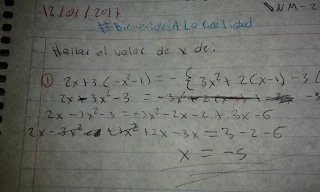 12/01/2017
NM-2
#Bienvenidos A La Realidad
Hallar el valor de x de:
① 2x+3(-x²-1) = -{3x²+2(x-1)-3(
2x-3x²-3 = -3x²
2x-3x²-3 = -3x²-2x-2+3x-6
2x-3x² +3x²+2x-3x=3-2-6
x = -5